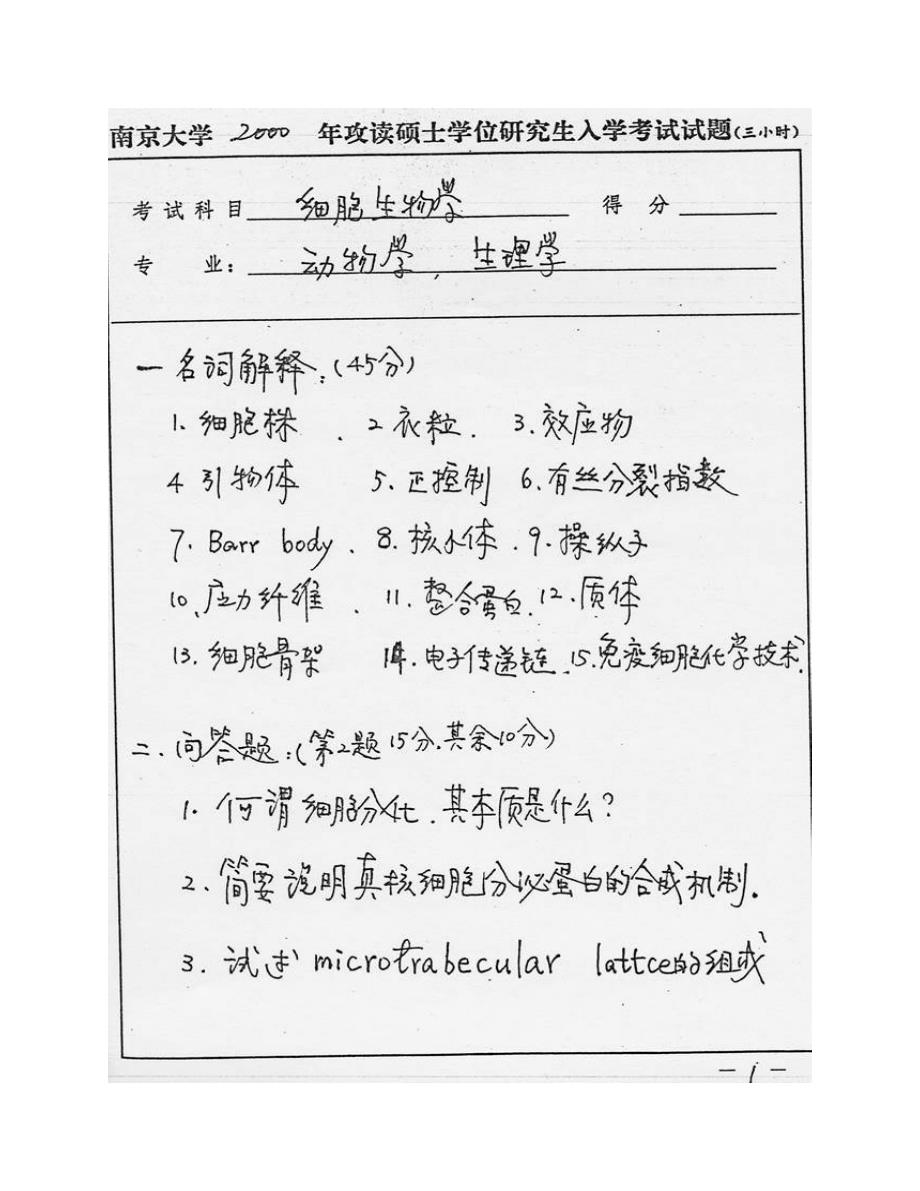 南京大学 2000 年攻读硕士学位研究生入学考试试题(三小时)
考试科目 细胞生物学 得分
专业: 动物学, 生理学
一 名词解释:(45分)
1. 细胞株 . 2 衣粒. 3.效应物
4 引物体 5. 正控制 6. 有丝分裂指数
7. Barr body . 8. 核小体 . 9. 操纵子
10. 应力纤维 . 11. 整合蛋白. 12. 质体
13. 细胞骨架 14. 电子传递链. 15.免疫细胞化学技术.
二. 问答题:(第2题15分.其余10分)
1. 何谓细胞分化. 其本质是什么?
2. 简要说明真核细胞分泌蛋白的合成机制.
3. 试述 microtrabecular lattce的组成
-1-